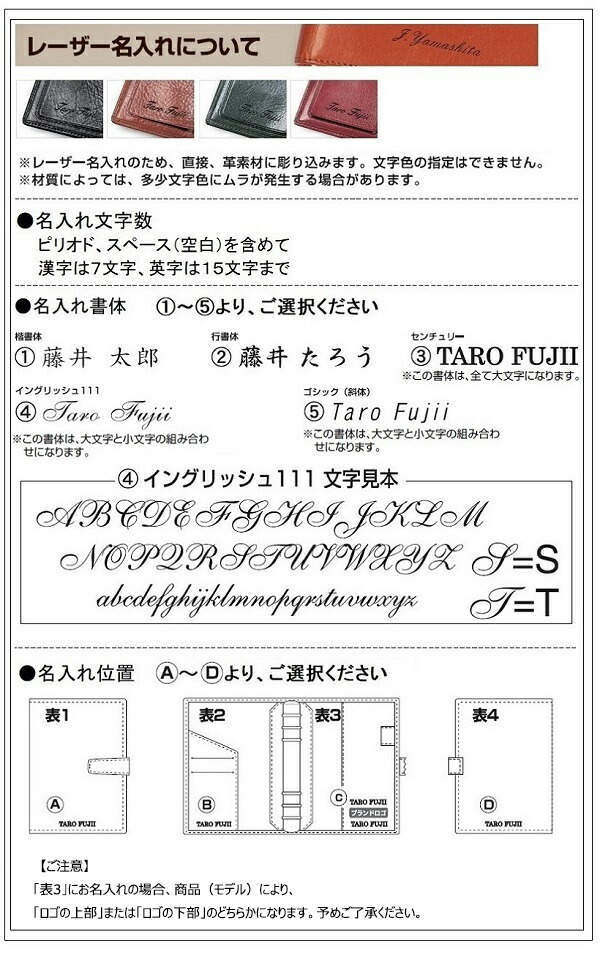 レーザー名入れについて
J. Yamashita
Taro Fujii
Taro Fujii
Taro Fujii
Taro Fujii
※レーザー名入れのため、直接、革素材に彫り込みます。文字色の指定はできません。
※材質によっては、多少文字色にムラが発生する場合があります。
●名入れ文字数
ピリオド、スペース(空白)を含めて
漢字は7文字、英字は15文字まで
●名入れ書体 ①〜⑤より、ご選択ください
楷書体
① 藤井 太郎
行書体
② 藤井 たろう
センチュリー
③ TARO FUJII
※この書体は、全て大文字になります。
イングリッシュ111
④ Taro Fujii
※この書体は、大文字と小文字の組み合わ
せになります。
ゴシック(斜体)
⑤ Taro Fujii
※この書体は、大文字と小文字の組み合わ
せになります。
④ イングリッシュ111 文字見本
ABCDEFGHIJKLM
NOPQRSTUVWXYZ
abcdefghijklmnopqrstuvwxyz
S=S
T=T
●名入れ位置 Ⓐ〜Ⓓより、ご選択ください
表1
Ⓐ
TARO FUJII
表2
Ⓑ
TARO FUJII
表3
Ⓒ
TARO FUJII
ブランドロゴ
TARO FUJII
表4
Ⓓ
TARO FUJII
【ご注意】
「表3」にお名入れの場合、商品(モデル)により、
「ロゴの上部」または「ロゴの下部」のどちらかになります。予めご了承ください。